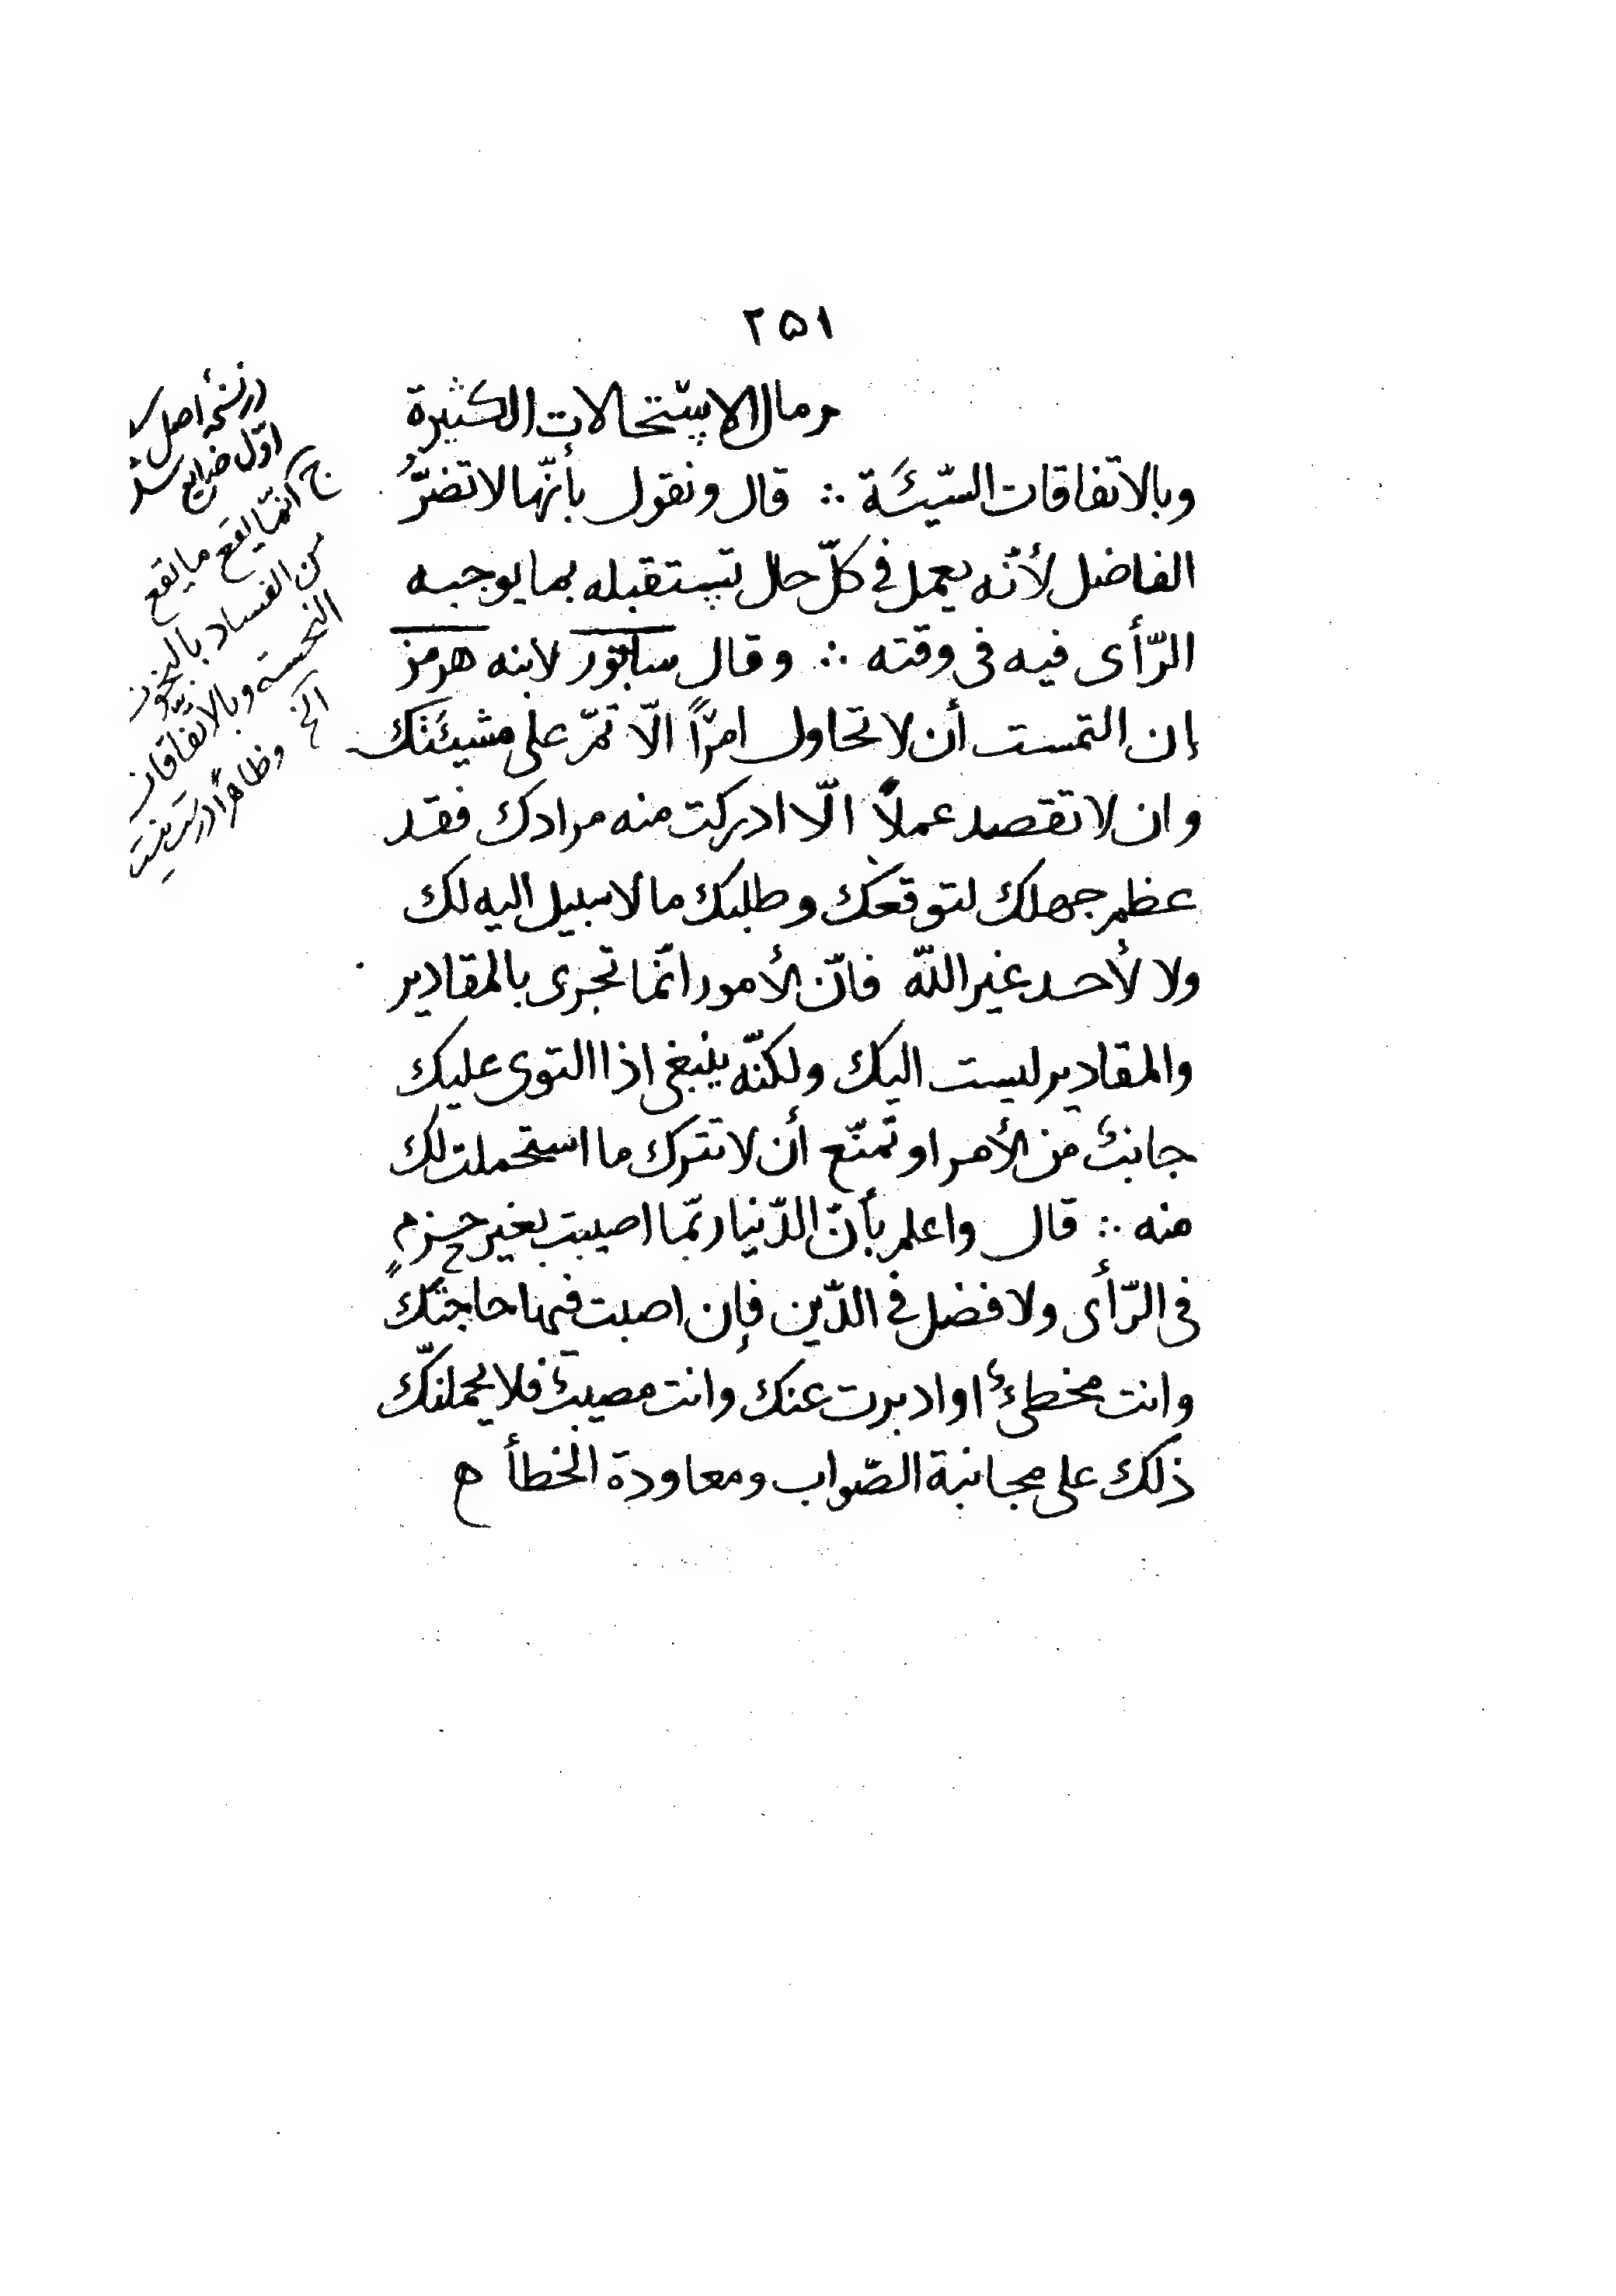 ٢٥١
ر مال الاستحالات الكثيرة
وبالاتفاقات السّيئة ∴ قال ونقول بأنّها لا تضرُّ
الفاضل لأنّه يعمل في كلّ حال تستقبله بما يوجبه
الرّأى فيه فى وقته ∴ وقال سابور لابنه هرمز
إن التمست أن لا تحاول امرًا الّا تمّ على مشيئتك
وان لا تقصد عملًا الّا ادركت منه مرادك فقد
عظم جهلك لتوقعك وطلبك ما لا سبيل اليه لك
ولا لأحد غير اللّه فانّ الأمور انّما تجرى بالمقادير
والمقادير ليست اليك ولكنّه ينبغى اذا التوى عليك
جانبٌ من الأمر او تمنّع أن لا تترك ما استحملت لك
منه ∴ قال واعلم بأنّ الدّنيا ربّما اصيبت بغير حزمٍ
فى الرّأى ولا فضل في الدّين فإن اصبت فيها حاجتك
وانت مخطئٌ او ادبرت عنك وانت مصيبٌ فلا يحملنّك
ذلك على مجانبة الصّواب ومعاودة الخطأ ه
در نسخهٔ اصل
اوّل ضايع شد
ج انّما يقع ما يقع
من الفساد بالبخوت
النحسته وبالاتّفاقات
الخ وظاهراً